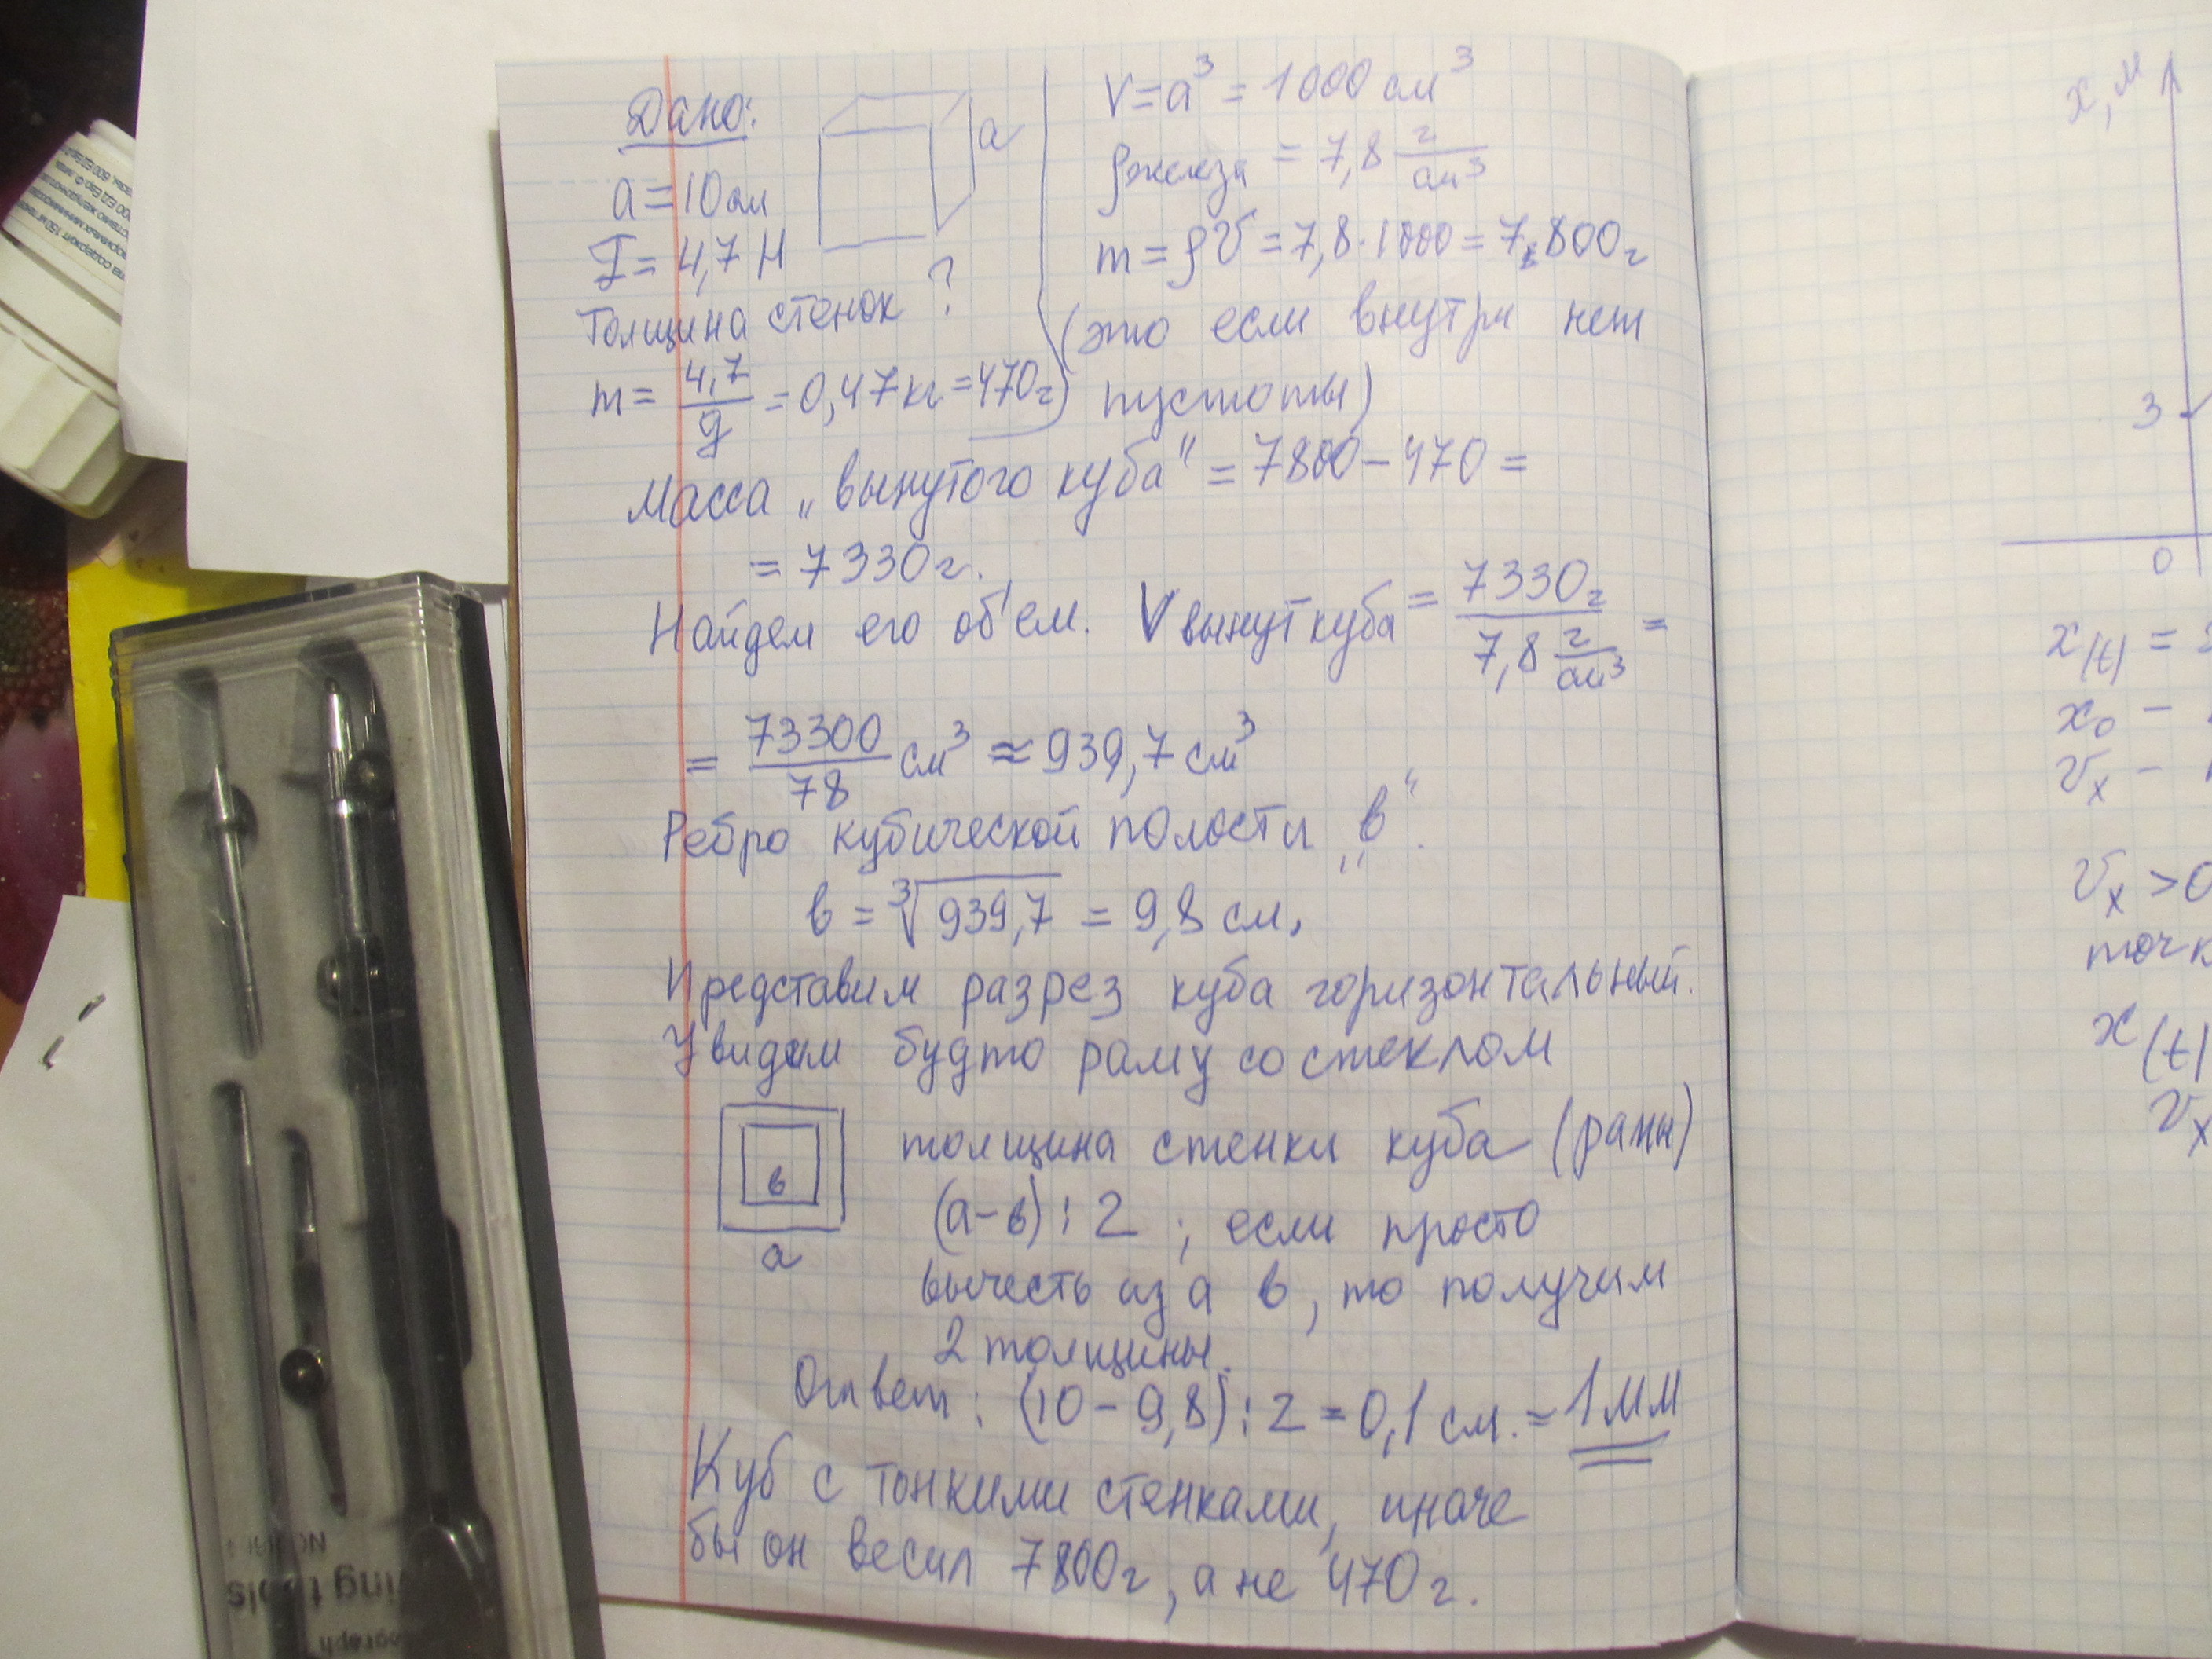 Дано:
a
a = 10 см
F = 4,7 Н
Толщина стенок ?
m = 4,7/g = 0,47 кг = 470 г
V = a³ = 1000 см³
ρжелеза = 7,8 г/см³
m = ρV = 7,8 · 1000 = 7800 г
(это если внутри нет
пустоты)
Масса „вынутого куба" = 7800 – 470 =
= 7330 г.
Найдем его об'ем. V вынут куба = 7330 г / 7,8 г/см³ =
= 73300/78 см³ ≈ 939,7 см³
Ребро кубической полости „в".
в = ³√939,7 = 9,8 см.
Представим разрез куба горизонтальный.
Увидим будто раму со стеклом
в
a
толщина стенки куба (рамы)
(a – в) : 2 ; если просто
вычесть из a в, то получим
2 толщины.
Ответ: (10 – 9,8) : 2 = 0,1 см. = 1 мм
Куб с тонкими стенками, иначе
бы он весил 7800 г, а не 470 г.
x, м
3
0
x(t) =
x₀ –
vₓ –
vₓ > 0
x(t)
vₓ